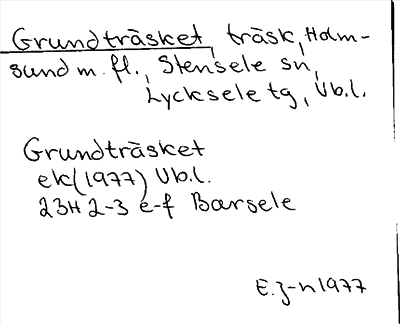 Grundträsket, träsk, Holm-
sund m. fl., Stensele sn,
Lycksele tg, Vb.l.
Grundträsket
ek(1977) Vb.l.
23H 2-3 e-f Barsele
E.J-n 1977